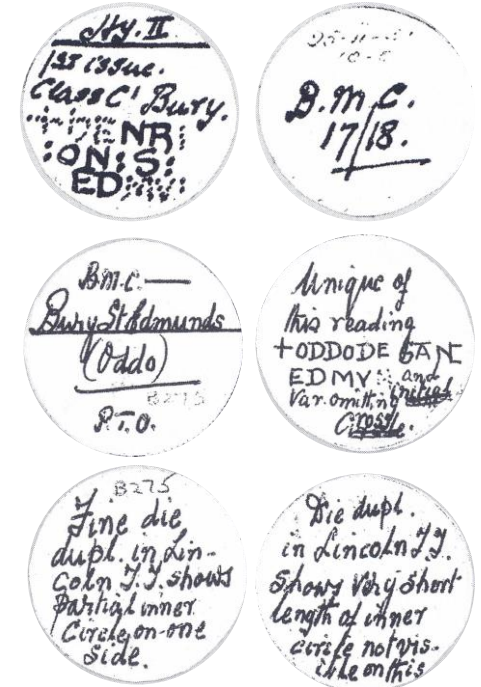 Hy. II
1st issue.
Class C' Bury.
ENR
:ON:S:
ED
B.M.C.
17/18.
B.M.C. —
Bury St Edmunds
(Oddo)
B275
P.T.O.
Unique of
this reading
+ODDODE SAN
EDMV and
Var. omitting initial
Cross.
B275
Fine die
dupl. in Lin-
coln T.T. shows
partial inner
Circle, on one
side.
Die dupl.
in Lincoln T.T.
Shows very short
length of inner
circle not vis-
ible on this